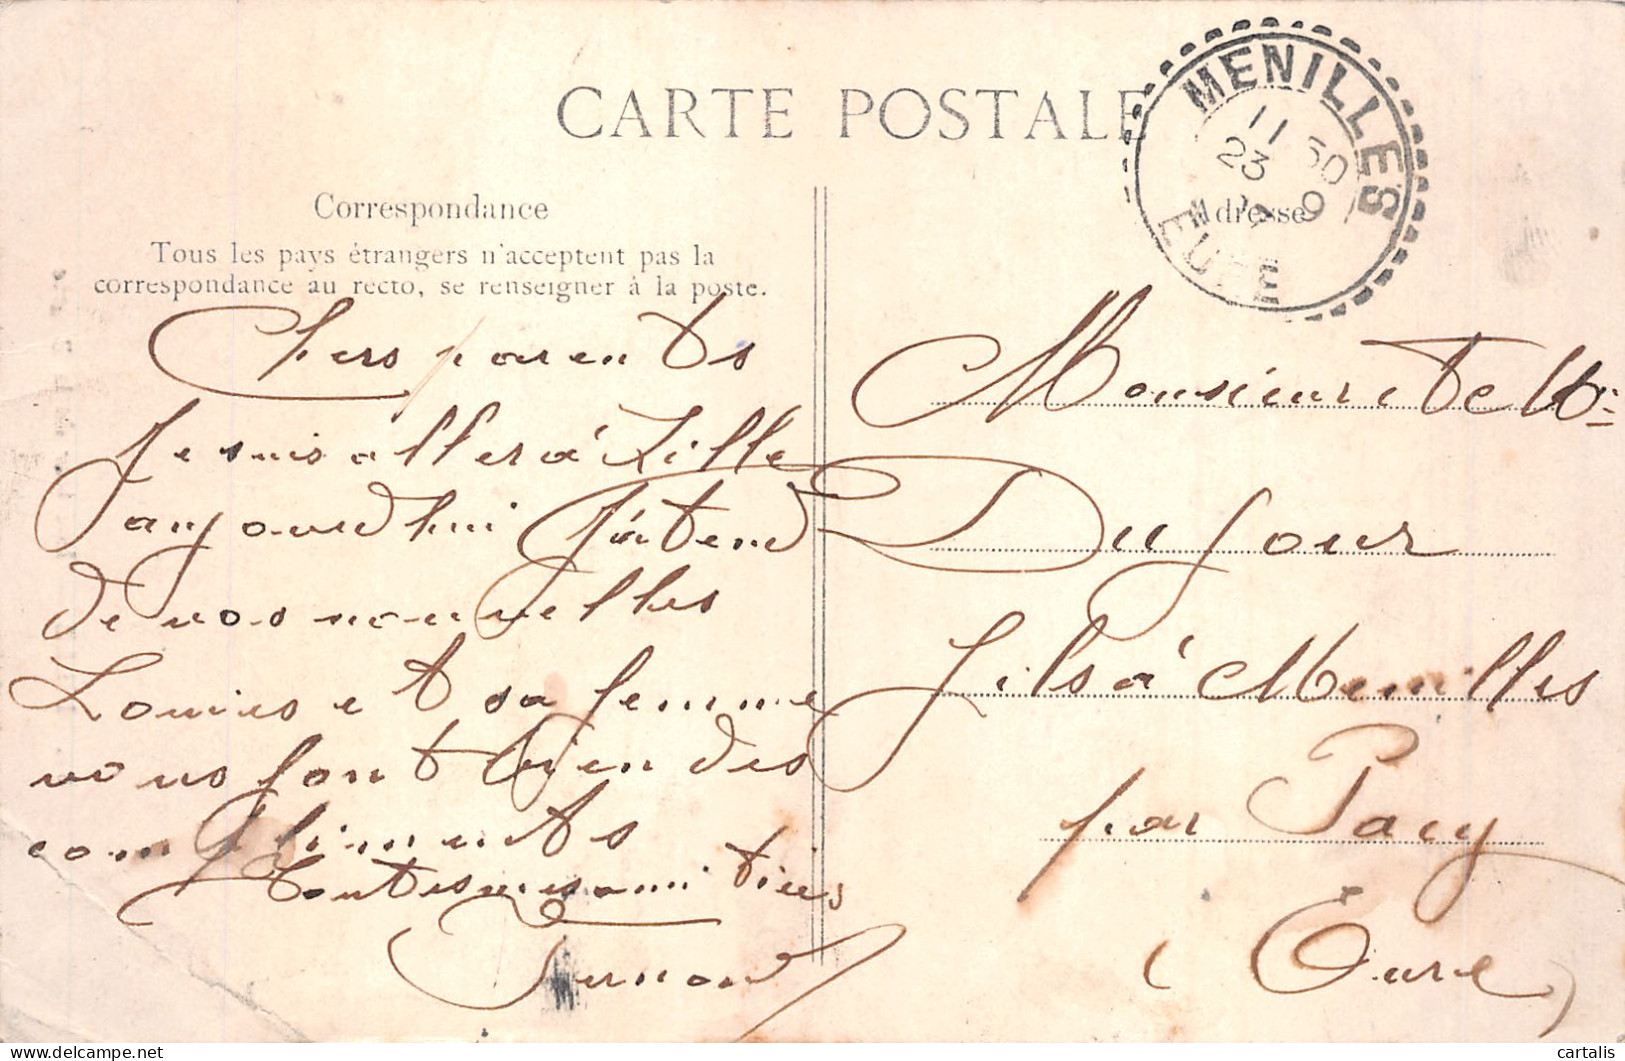 CARTE POSTALE
MENILLES
11 50
23
9
EURE
Correspondance
Adresse
Tous les pays étrangers n'acceptent pas la
correspondance au recto, se renseigner à la poste.
Chers parents
Je suis aller à Lille
aujourd'hui J'atend
de vos nouvelles
Louis et sa femme
vous font bien des
compliments
toutes mes amitiés
Fernand
Monsieur et Mme
Dufour
fils à Menilles
par Pacy
(Eure)
cartalis